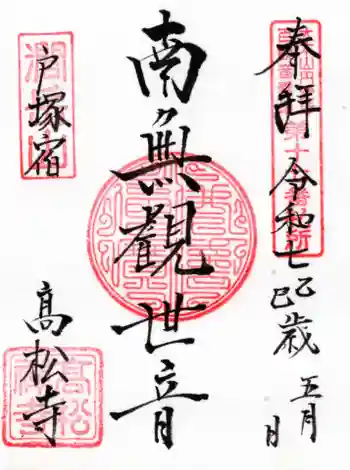 奉拝
令和七乙巳歳 五月 日
南無觀世音
戸塚宿
高松寺